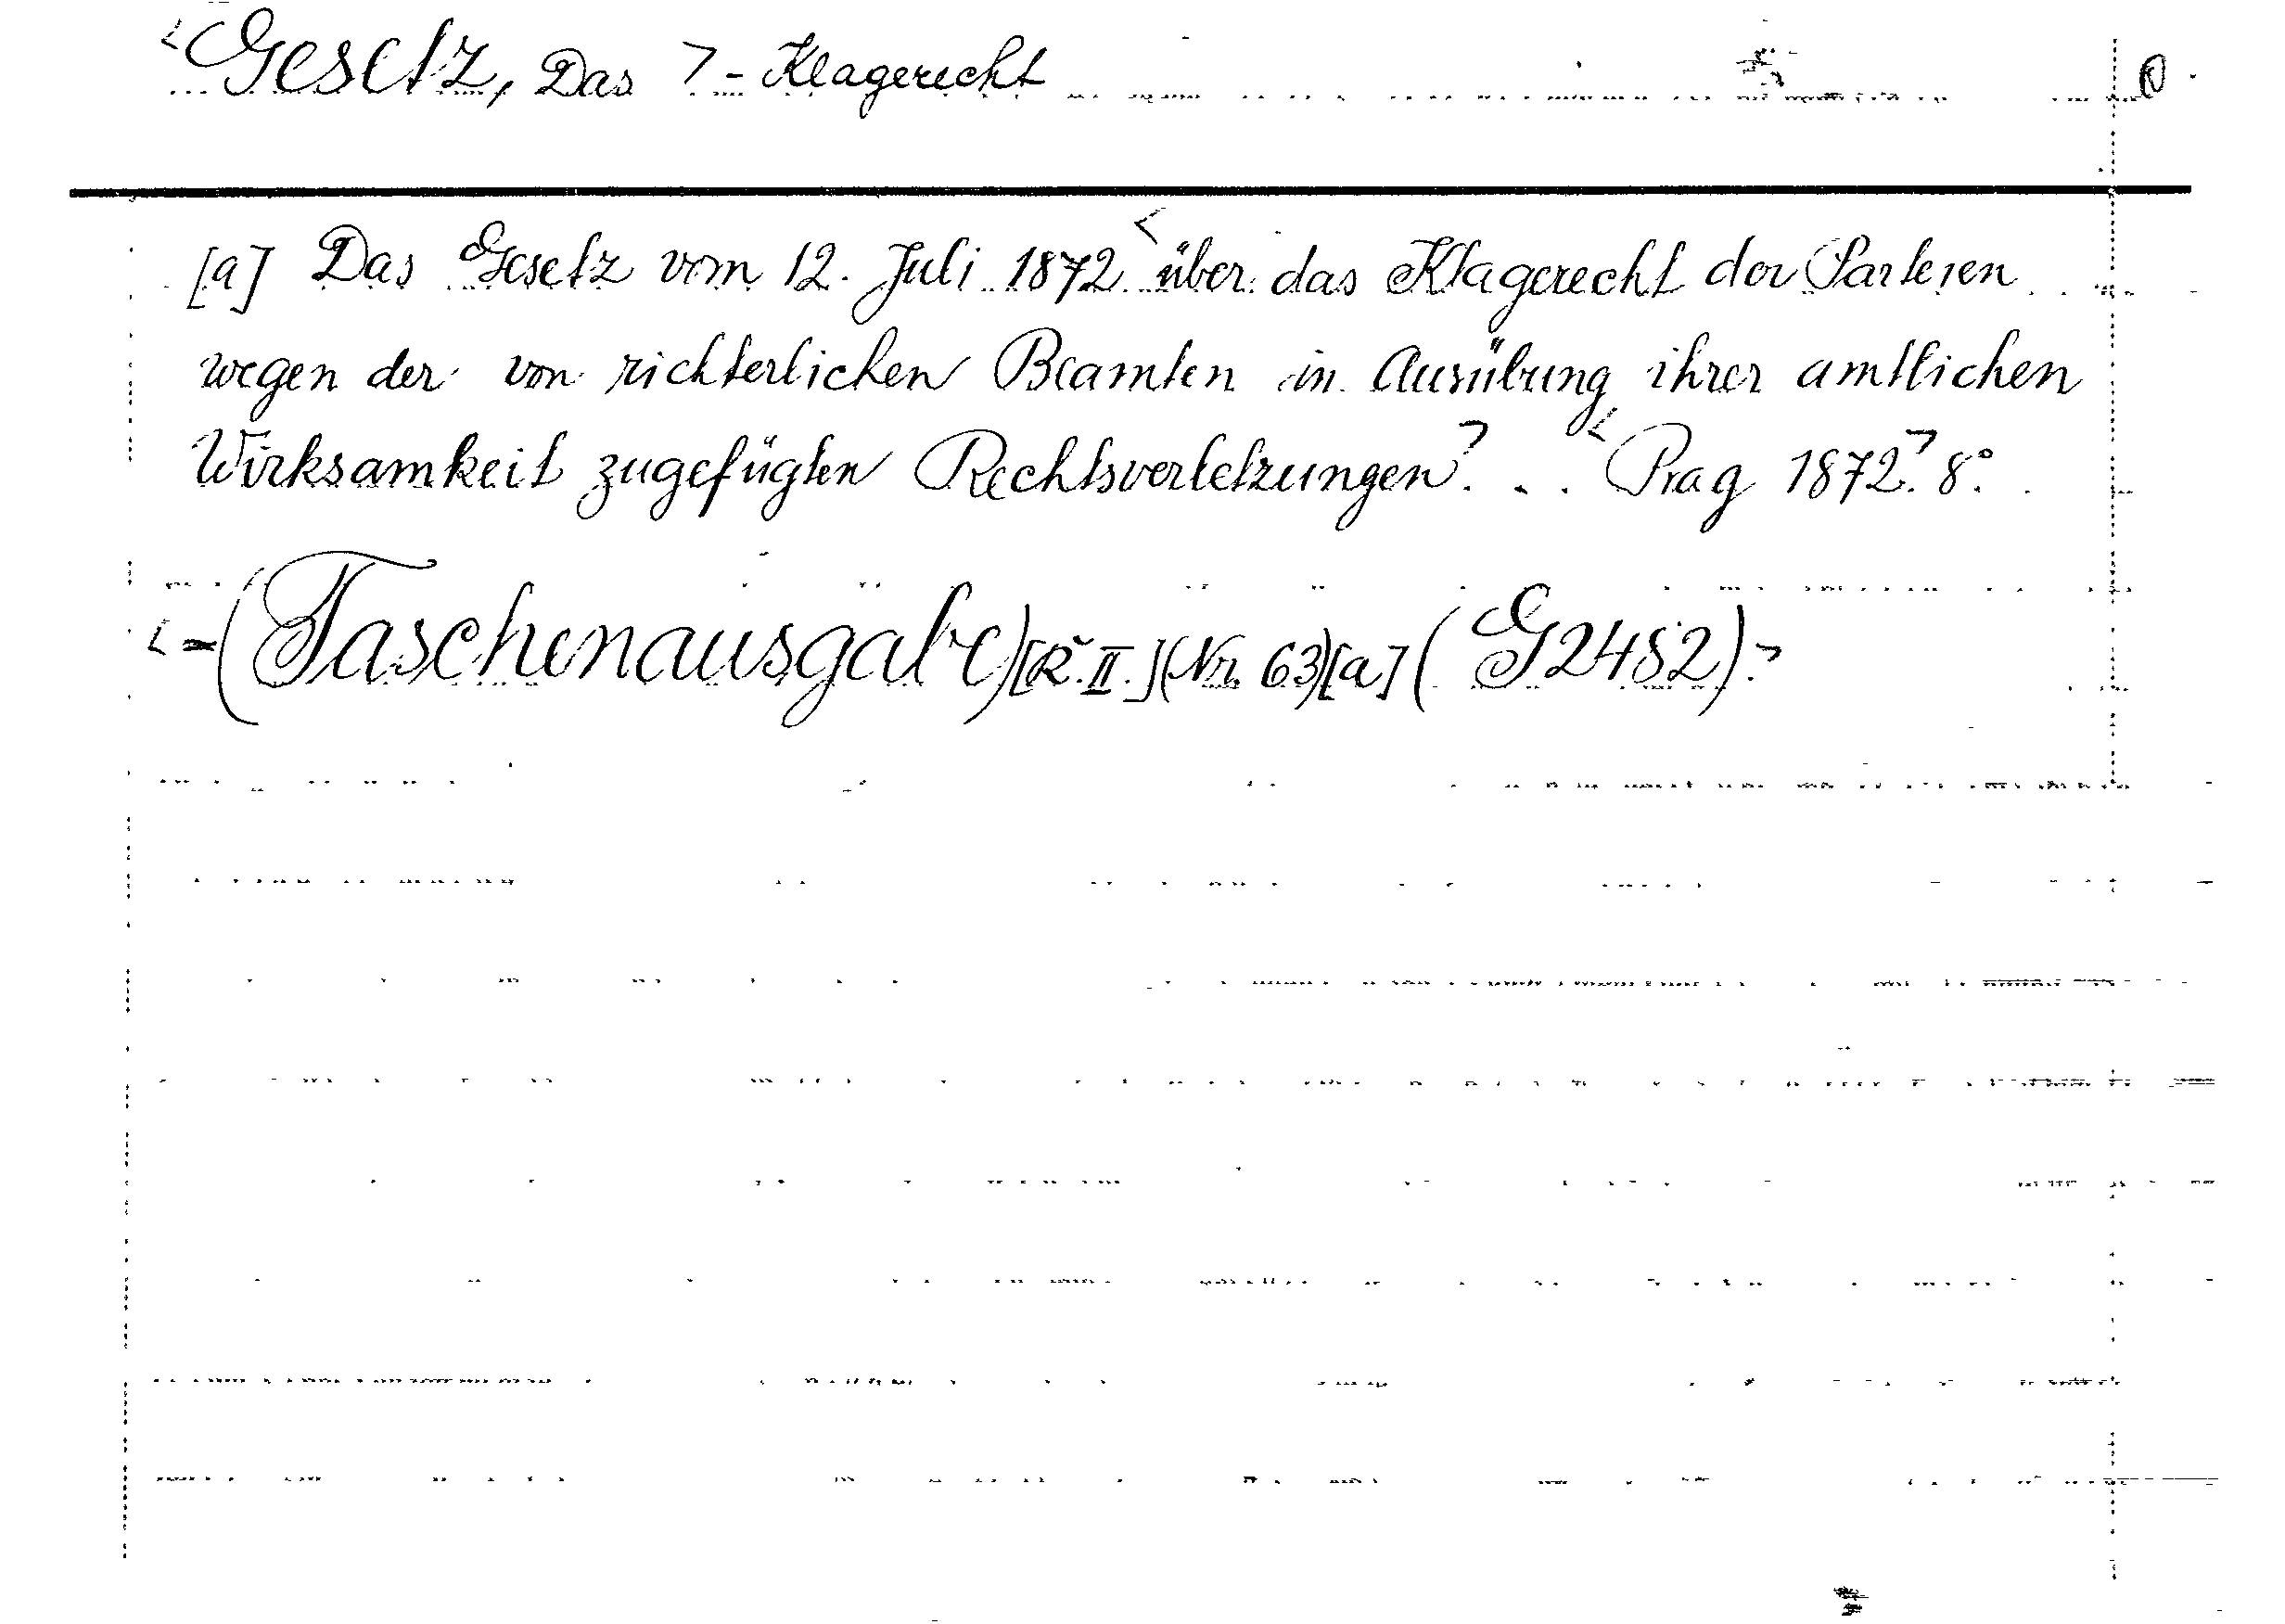 <Gesetz, Das > - Klagerecht
[a] Das Gesetz vom 12. Juli 1872 <über das Klagerecht der Parteien
wegen der von richterlichen Beamten in Ausübung ihrer amtlichen
Wirksamkeit zugefügten Rechtsverletzungen>. . . <Prag 1872>. 8°.
<-(Taschenausgabe)[R. II.](Nr. 63)[a] (G2482).>